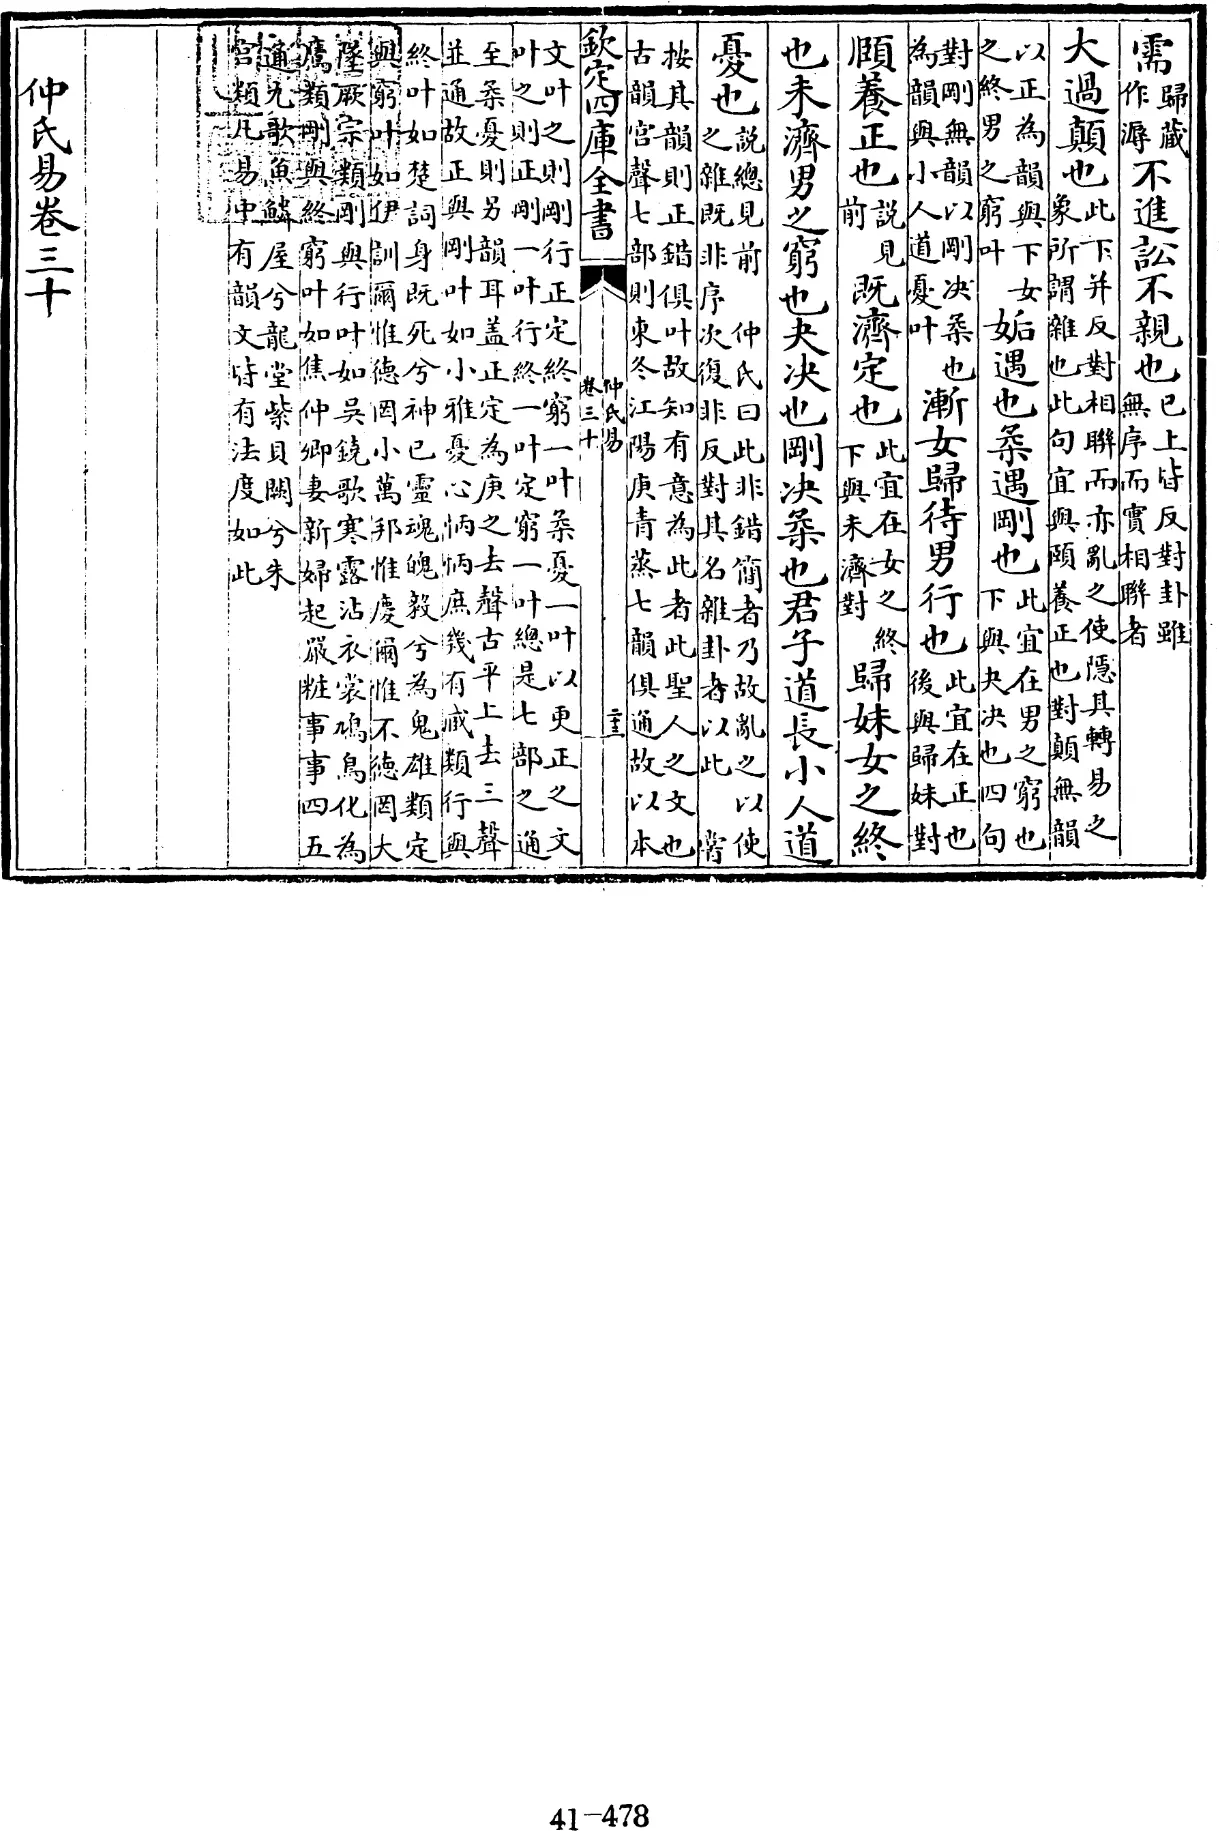 需歸藏作溽不進訟不親也已上皆反對卦雖無序而實相聯者
大過顛也此下并反對相聯而亦亂之使隱其轉易之象所謂雜也此句宜與頤養正也對顛無韻
以正為韻與下女之終男之窮叶姤遇也柔遇剛也此宜在男之窮也下與夬决也四句
對剛無韻以剛决柔也為韻與小人道憂叶漸女歸待男行也此宜在正也後與歸妹對
頤養正也說見前既濟定也此宜在女之終下與未濟對歸妹女之終
也未濟男之窮也夬决也剛决柔也君子道長小人道
憂也說總見前 仲氏曰此非錯簡者乃故亂之以使之雜既非序次復非反對其名雜卦者以此嘗
按其韻則正錯俱叶故知有意為此者此聖人之文也
古韻宮聲七部則東冬江陽庚青蒸七韻俱通故以本
欽定四庫全書
仲氏易
卷三十
文叶之則剛行正定終窮一叶柔憂一叶以更正之文
叶之則正剛一叶行終一叶定窮一叶總是七部之通
至柔憂則另韻耳盖正定為庚之去聲古平上去三聲
並通故正與剛叶如小雅憂心怲怲庶幾有臧類行與
終叶如楚詞身既死兮神已靈魂魄毅兮為鬼雄類定
與窮叶如伊訓爾惟德罔小萬邦惟慶爾惟不德罔大
墜厥宗類剛與行叶如吳鐃歌寒露沾衣裳鳩鳥化為
鷹類剛與終窮叶如焦仲卿妻新婦起嚴粧事事四五
通九歌魚鱗屋兮龍堂紫貝闕兮朱
宮類凡易中有韻文時有法度如此
仲氏易卷三十
41-478